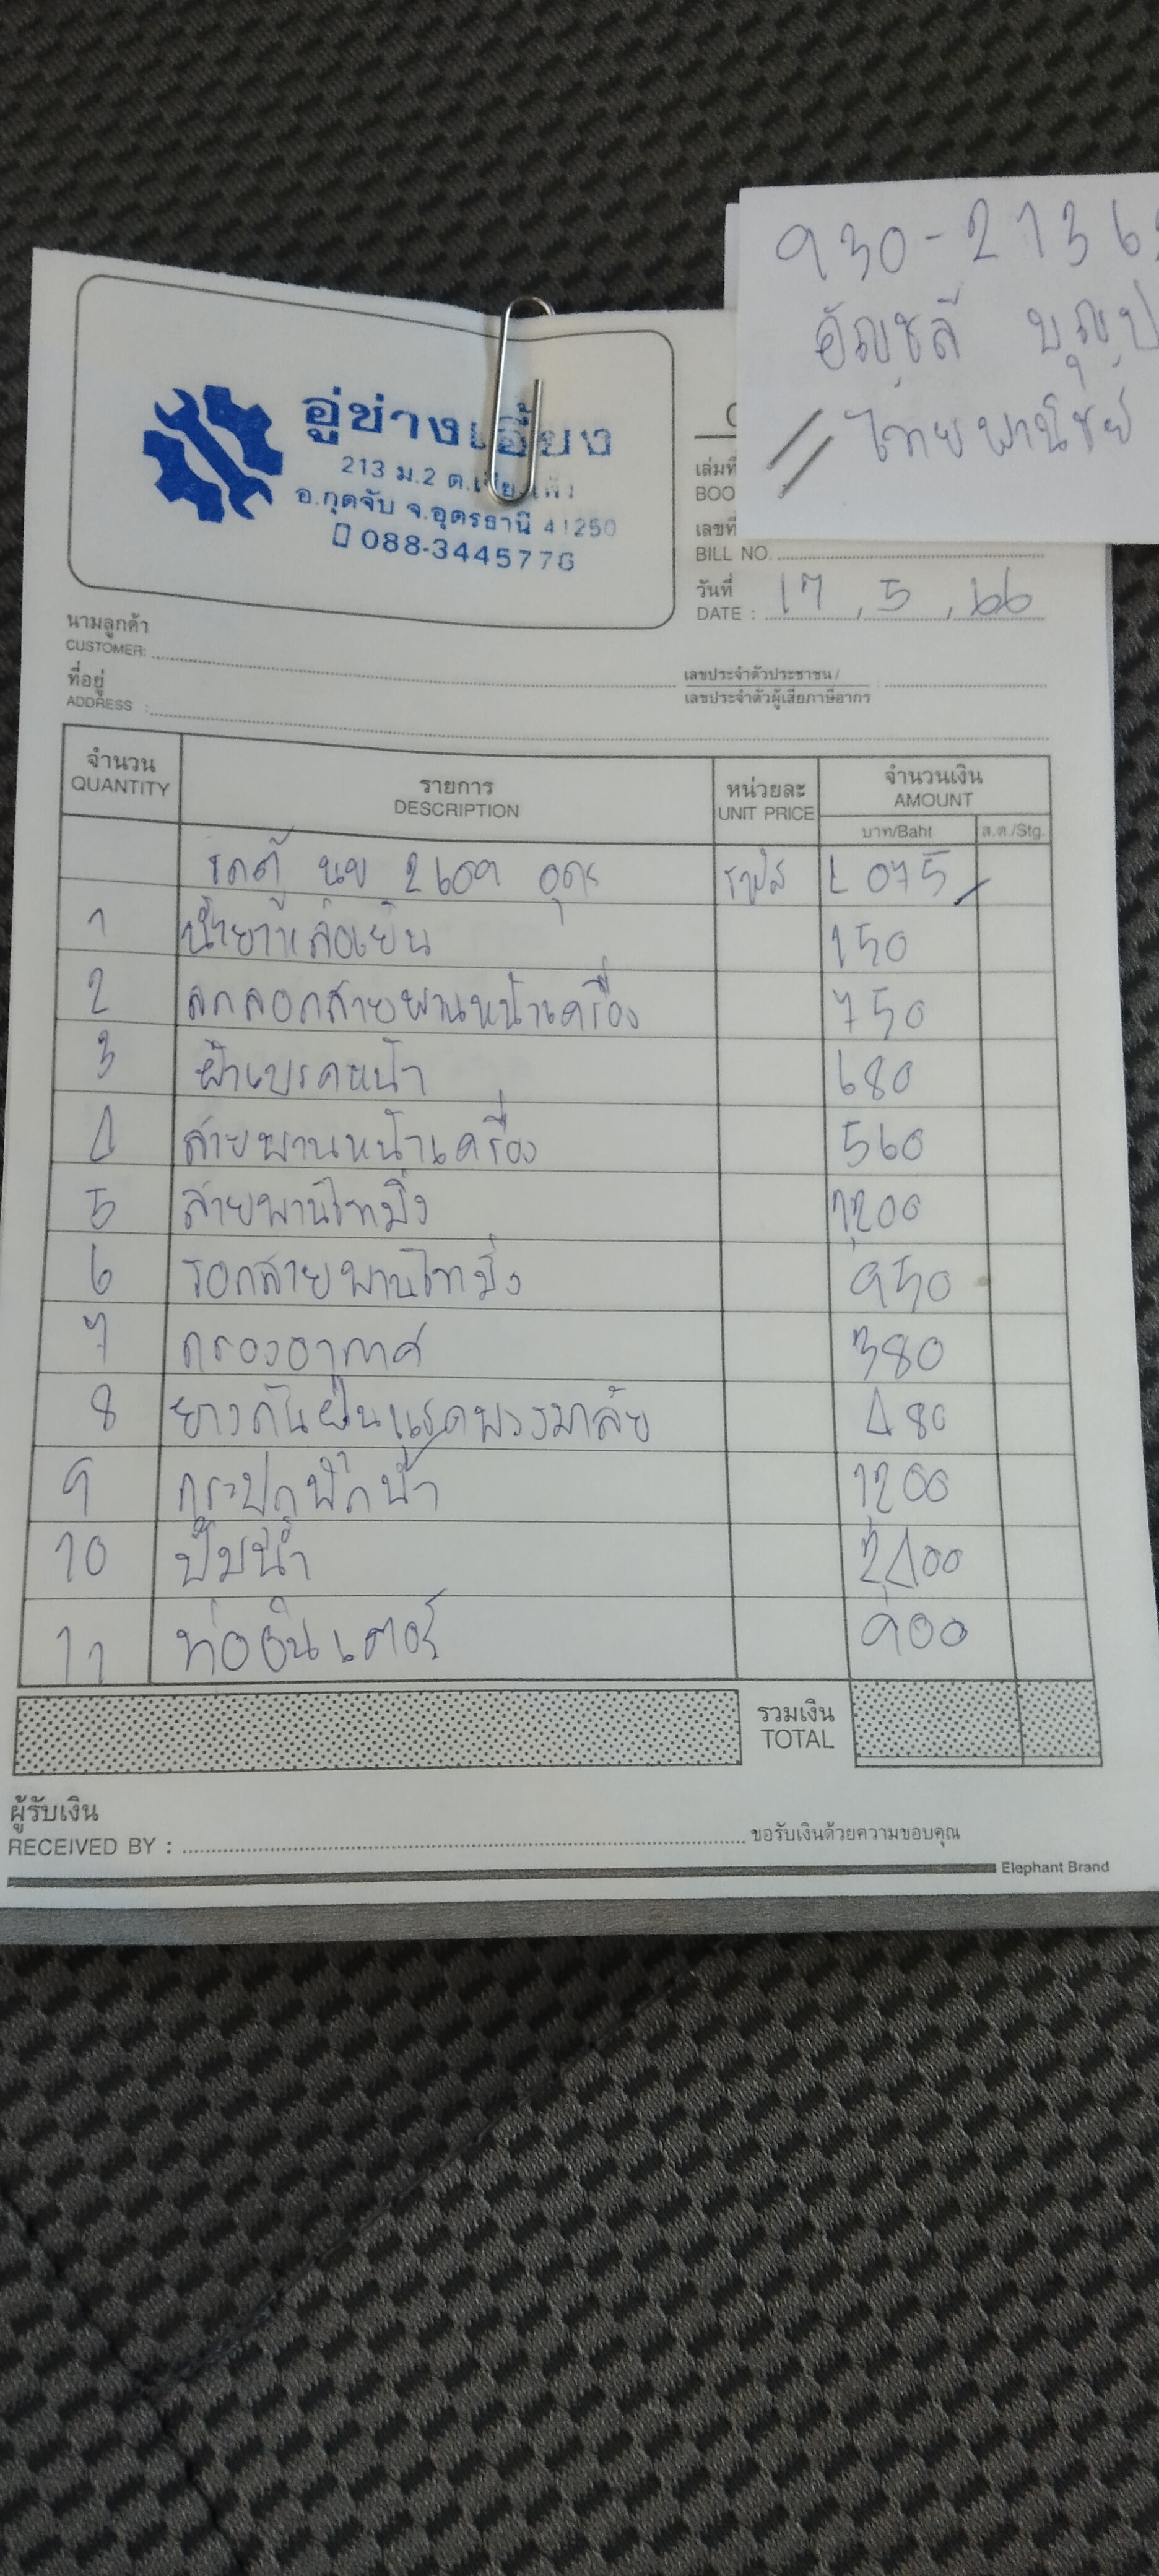 930-2136
อัญชลี บุญป
ไทยพานิชย์
อู่ช่างเอี้ยง
213 ม.2 ต.
อ.กุดจับ จ.อุดรธานี 41250
088-3445776
เล่มที่
BOO
เลขที่
BILL NO.
วันที่
DATE : 17 , 5 , 66
นามลูกค้า
CUSTOMER:
ที่อยู่
ADDRESS :
เลขประจำตัวประชาชน /
เลขประจำตัวผู้เสียภาษีอากร
จำนวน รายการ หน่วยละ จำนวนเงิน
QUANTITY DESCRIPTION UNIT PRICE AMOUNT
บาท/Baht ส.ต./Stg.
รถตู้ นข 2609 อุดร รหัส L 075
1 น้ำยาหล่อเย็น 150
2 ลูกลอกสายพานหน้าเครื่อง 750
3 ผ้าเบรคหน้า 680
4 สายพานหน้าเครื่อง 560
5 สายพานไทมิ่ง 1,200
6 รอกสายพานไทมิ่ง 950
7 กรองอากาศ 380
8 ยางกันฝุ่นแร็คพวงมาลัย 480
9 กระปุกพักน้ำ 1,200
10 ปั๊มน้ำ 2,400
11 ท่ออินเตอร์ 900
รวมเงิน
TOTAL
ผู้รับเงิน
RECEIVED BY : ขอรับเงินด้วยความขอบคุณ
Elephant Brand